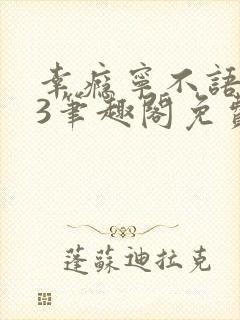 幸瘾寧不語
3笔趣閣免費
蓬蘇迪拉克